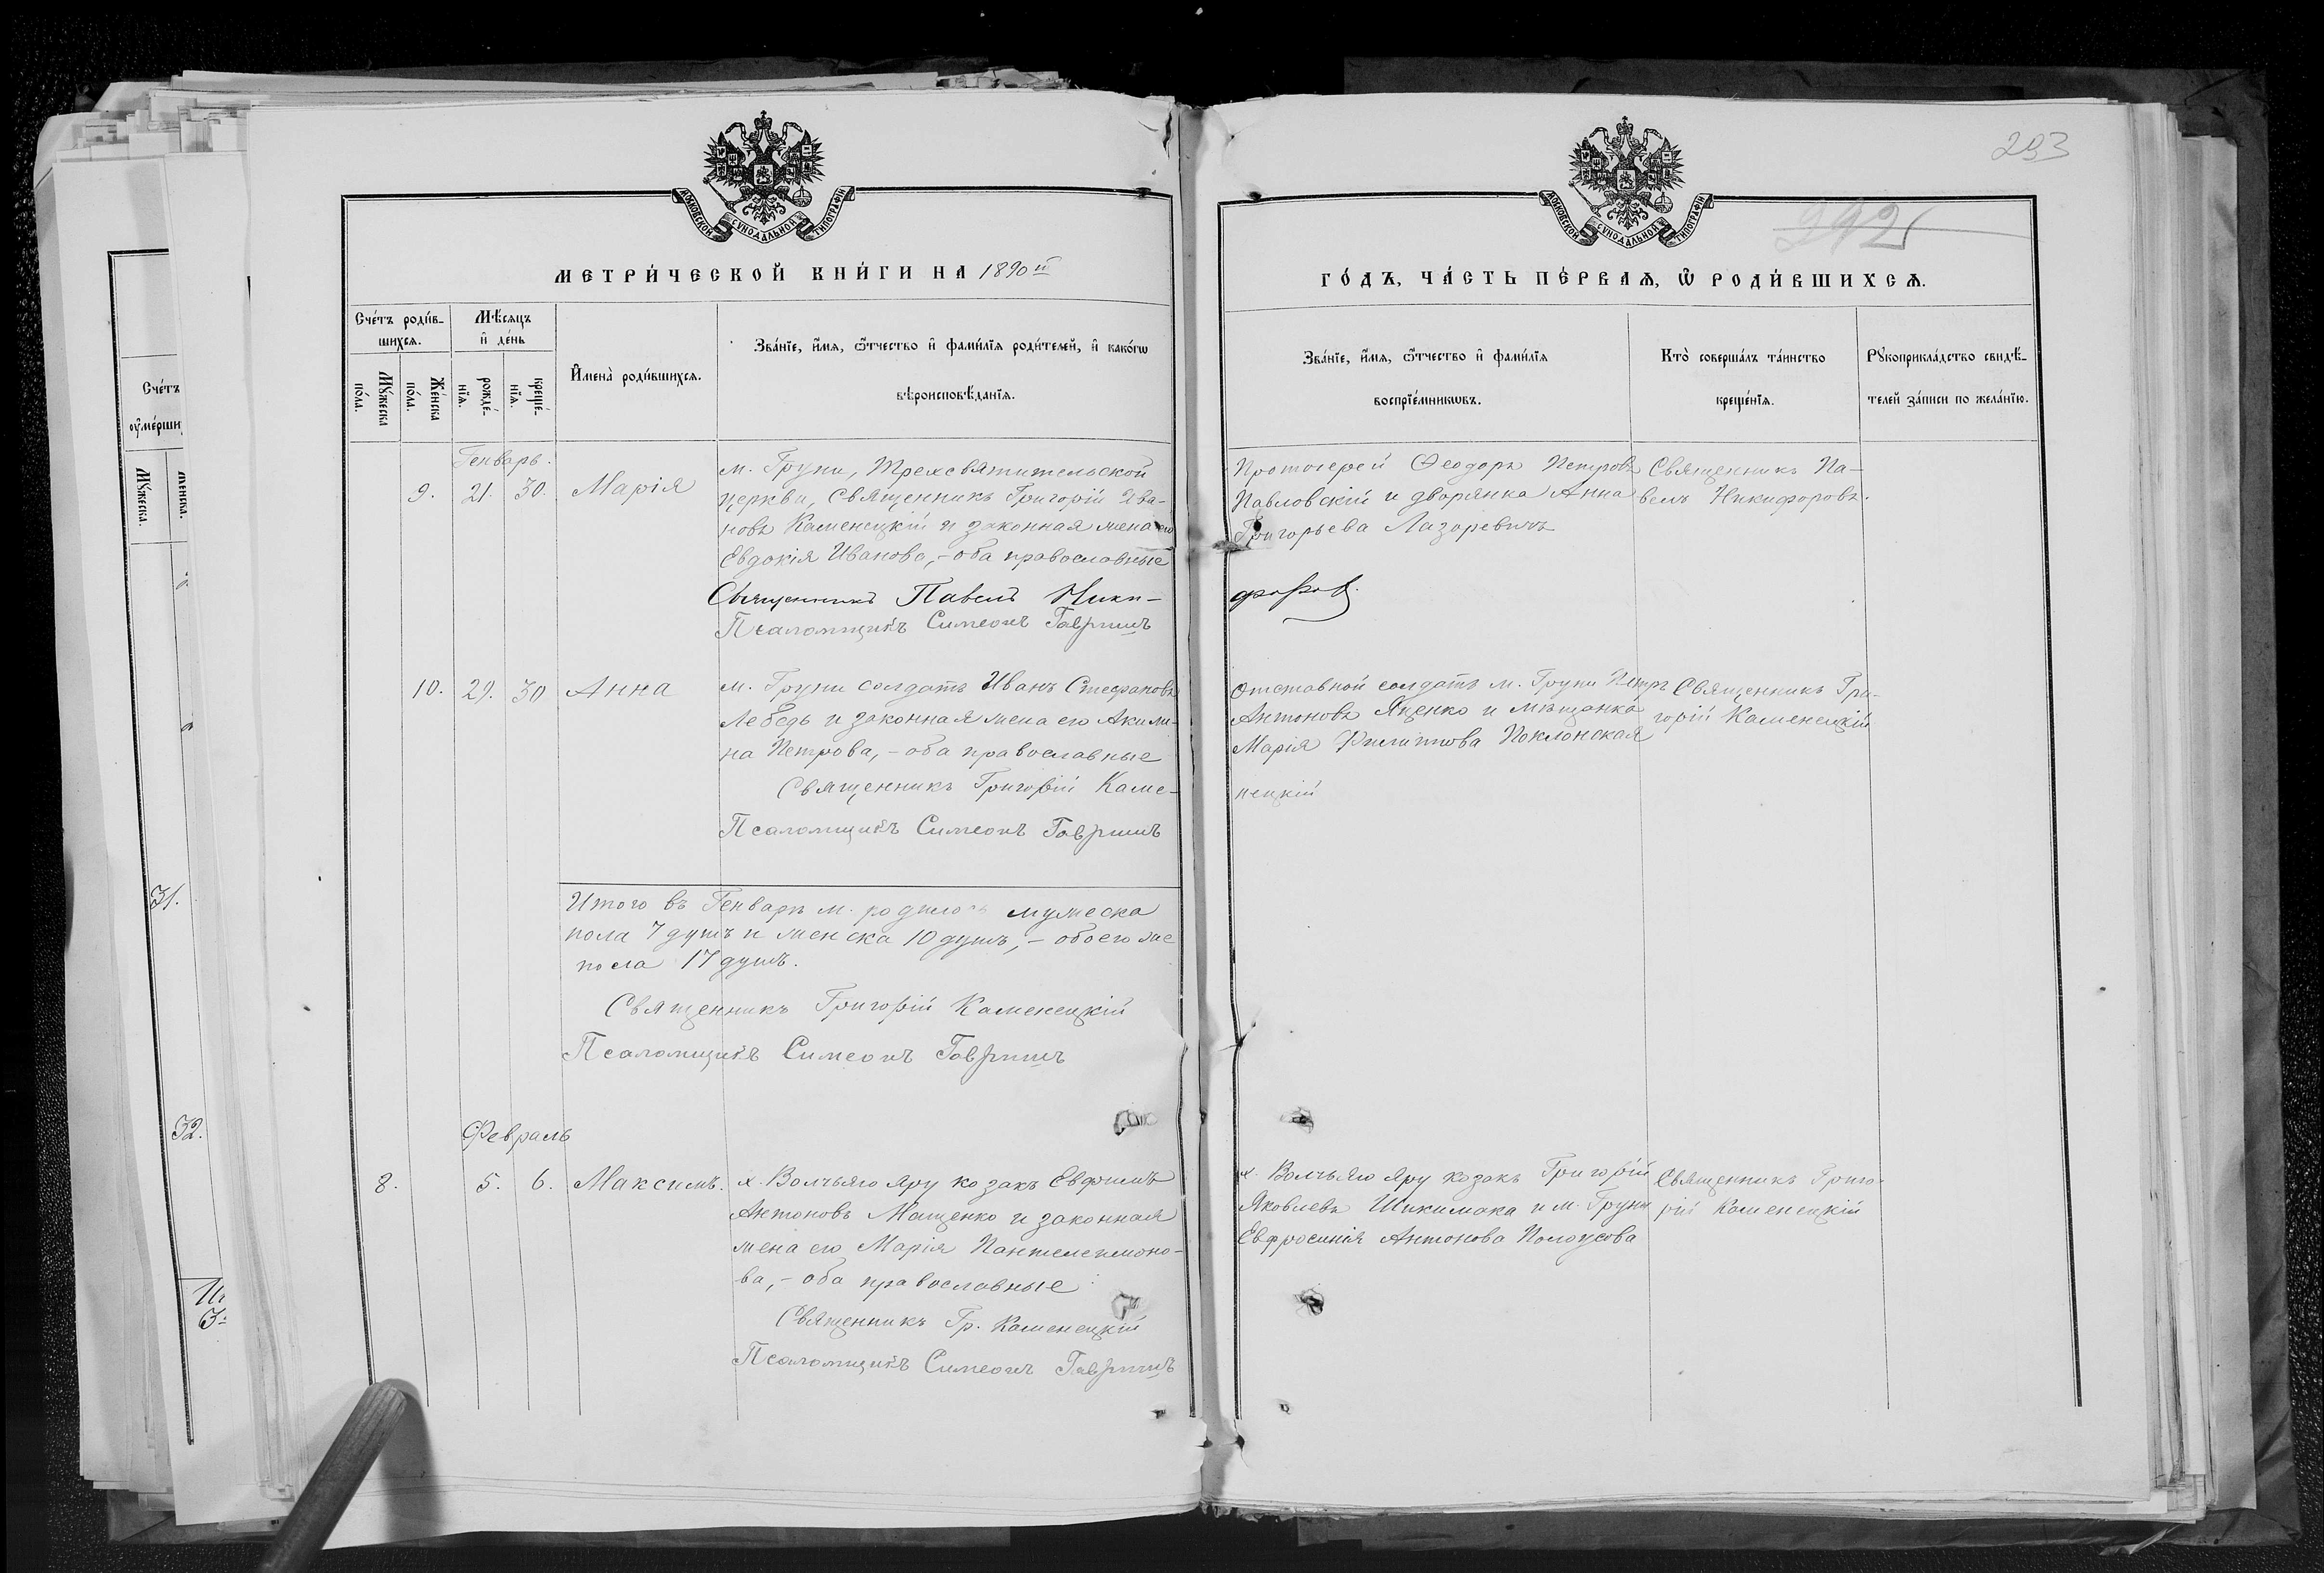 МОСКОВСКОЙ СѴНОДАЛЬНОЙ ТИПОГРАФІИ
МЕТРИ́ЧЕСКОЙ КНИ́ГИ НА 1890й
Счéтъ роди́в-
шихсѧ.
Мꙋ́жеска
по́ла.
Же́нска
по́ла.
Мѣ́сѧцъ
и҆ де́нь
рожде́-
нїѧ.
креще́-
нїѧ.
И҆мена̀ роди́вшихсѧ.
Зва́нїе, и҆́мѧ, ѻ҆́тчество и҆ фами́лїѧ роди́телей, и҆ како́гѡ
вѣроисповѣ́данїѧ.
Генварь.
9. 21. 30. Марія
м. Груни, Трехсвятительской
церкви, Священникъ Григорій Ива-
новъ Каменецкій и законная жена его
Евдокія Иванова,- оба православные
Священникъ Павелъ Ники-
Псаломщикъ Симеонъ Гавришъ
10. 29. 30 Анна
м. Груни солдатъ Иванъ Стефановъ
Лебедь и законная жена его Акили-
на Петрова,- оба православные
Священникъ Григорій Каме-
Псаломщикъ Симеонъ Гавришъ
Итого въ Генварѣ м. родилось мужеска
пола 7 душъ и женска 10 душъ,- обоего же
пола 17 душъ.
Священникъ Григорій Каменецкій
Псаломщикъ Симеонъ Гавришъ
Февраль
8. 5. 6. Максимъ.
х. Волчьяго Яру козакъ Евфимъ
Антоновъ Мащенко и законная
жена его Марія Пантелеимоно-
ва,- оба православные
Священникъ Гр. Каменецкій
Псаломщикъ Симеонъ Гавришъ
293
292
МОСКОВСКОЙ СѴНОДАЛЬНОЙ ТИПОГРАФІИ
ГО́ДЪ, ЧА́СТЬ ПЕ́РВАѦ, Ѽ РОДИ́ВШИХСѦ.
Зва́нїе, и҆́мѧ, ѻ҆́тчество и҆ фами́лїѧ
воспрїе́мникѡвъ.
Кто̀ соверша́лъ та́инство
креще́нїѧ.
Рꙋкоприкла́дство свидѣ́-
телей за́писи по жела́нїю.
Протоіерей Ѳеодоръ Петровъ
Павловскій и дворянка Анна
Григорьева Лазаревичъ
Священникъ Па-
велъ Никифоровъ.
форовъ.
Отставной солдатъ м. Груни Петръ
Антоновъ Яценко и мѣщанка
Марія Филиппова Поклонская
Священникъ Гри-
горій Каменецкій
нецкій
х. Волчьяго Яру козакъ Григорій
Яковлевъ Шикимака и м. Груни
Евфросинія Антонова Полоусова
Священникъ Григо-
рій Каменецкій
Счéтъ
ᲂу҆ме́рши
Мꙋ́жеска.
Же́нска.
31.
32.